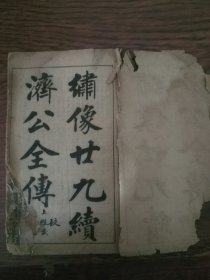 繡像廿九續
濟公全傳